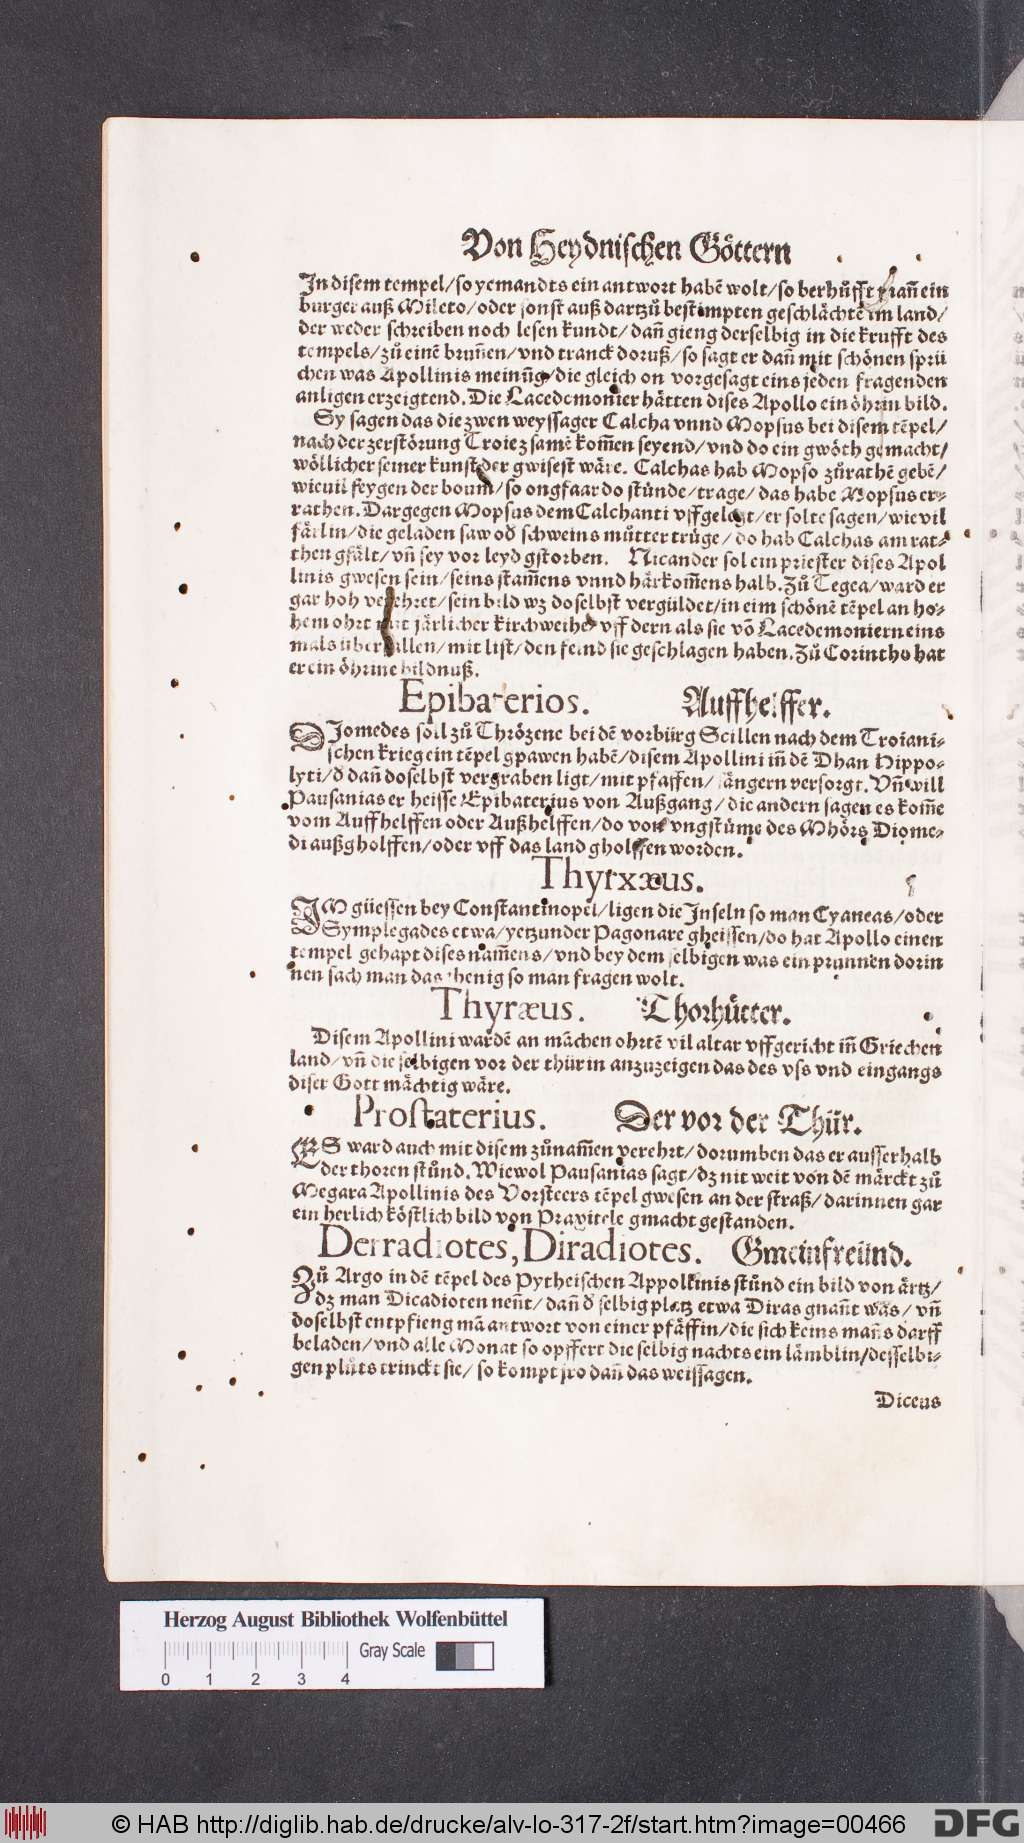 Von Heydnischen Göttern
In disem tempel/ so yemandts ein antwort habē wolt/ so berhůfft man̄ ein
burger auß Mileto/ oder sonst auß dartzů bestimpten geschlächtē im land/
der weder schreiben noch lesen kundt/ dan̄ gieng derselbig in die krufft des
tempels/ zů einē brun̄en/ vnd tranck doruß/ so sagt er dan̄ mit schönen sprü
chen was Apollinis meinūg/ die gleich on vorgesagt eins jeden fragenden
anligen erzeigtend. Die Lacedemonier hätten dises Apollo ein öhrin bild.
Sy sagen das die zwen weyssager Calcha vnnd Mopsus bei disem tēpel/
nach der zerstörung Troie zsamē kom̄en seyend/ vnd do ein gwöth gemacht/
wöllicher seiner kunst der gwisest wäre. Calchas hab Mopso zůrathē gebē/
wieuil feygen der boum/ so ongfaar do stůnde/ trage/ das habe Mopsus er-
rathen. Dargegen Mopsus dem Calchanti vffgelegt/ er solte sagen/ wie vil
färlin/ die geladen saw oď schweins můtter trüge/ do hab Calchas am rat-
then gfält/ vn̄ sey vor leyd gstorben. Nicander sol ein priester dises Apol
linis gwesen sein/ seins stam̄ens vnnd härkom̄ens halb. Zů Tegea/ ward er
gar hoh verehret/ sein bild wz doselbst vergüldet/ in eim schönē tēpel an ho-
hem ohrt mit järlicher kirchweihe/ vff dern als sie vō Lacedemoniern eins
mals überfallen/ mit list/ den feind sie geschlagen haben. Zů Corintho hat
er ein öhrine bildnuß.
Epibaterios. Auffhelffer.
DJomedes soll zů Thrözene bei dē vorbürg Scillen nach dem Troiani-
schen krieg ein tēpel gpawen habē/ disem Apollini in̄ dē Dhan Hippo-
lyti/ ď dan̄ doselbst vergraben ligt/ mit pfaffen/ sängern versorgt. Vn̄ will
Pausanias er heisse Epibaterius von Außgang/ die andern sagen es kom̄e
vom Auffhelffen oder Außhelffen/ do von vngstüme des Mhörs Diome-
di außgholffen/ oder vff das land gholffen worden.
Thyrxæus.
IM güessen bey Constantinopel/ ligen die Inseln so man Cyaneas/ oder
Symplegades etwa/ yetzunder Pagonare gheissen/ do hat Apollo einen
tempel gehapt dises nam̄ens/ vnd bey dem selbigen was ein prunnen dorin
nen sach man das ihenig so man fragen wolt.
Thyræus. Thorhütter.
Disem Apollini wardē an mächen ohrtē vil altar vffgericht in̄ Griechen
land/ vn̄ die selbigen vor der thür in anzuzeigen das des vss vnd eingangs
diser Gott mächtig wäre.
Prostaterius. Der vor der Thür.
ES ward auch mit disem zůnam̄en verehrt/ dorumben das er ausserhalb
der thoren stůnd. Wiewol Pausanias sagt/ dz nit weit von dē märckt zů
Megara Apollinis des Vorsteers tēpel gwesen an der straß/ darinnen gar
ein herlich köstlich bild von Praxitele gmacht gestanden.
Derradiotes, Diradiotes. Gmeinfreünd.
Zů Argo in dē tēpel des Pytheischen Appollinis stůnd ein bild von ärtz/
dz man Dicadioten nen̄t/ dan̄ ď selbig platz etwa Diras gnan̄t was/ vn̄
doselbst entpfieng mā antwort von einer pfäffin/ die sich keins man̄s darff
beladen/ vnd alle Monat so opffert die selbig nachts ein lämblin/ desselbi-
gen plůts trinckt sie/ so kompt jro dan̄ das weissagen.
Diceus
Herzog August Bibliothek Wolfenbüttel
Gray Scale
0 1 2 3 4
© HAB http://diglib.hab.de/drucke/alv-lo-317-2f/start.htm?image=00466
DFG